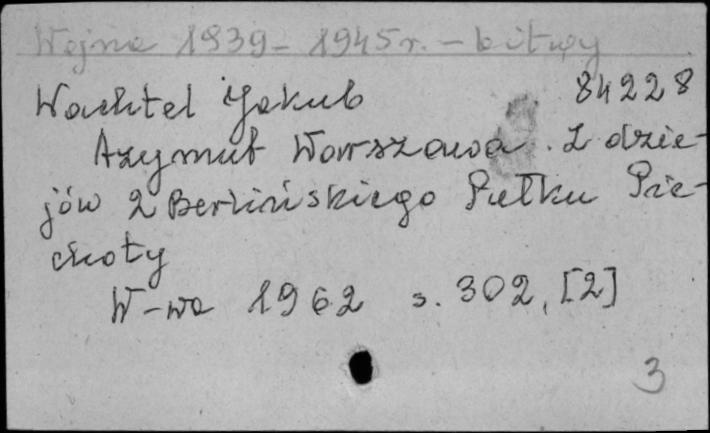 Wojna 1939-1945r. - bitwy
Wachtel Jakub 84228
Azymut Warszawa. Z dzie-
jów 2 Berlińskiego Pułku Pie-
choty
W-wa 1962 s. 302, [2]
3